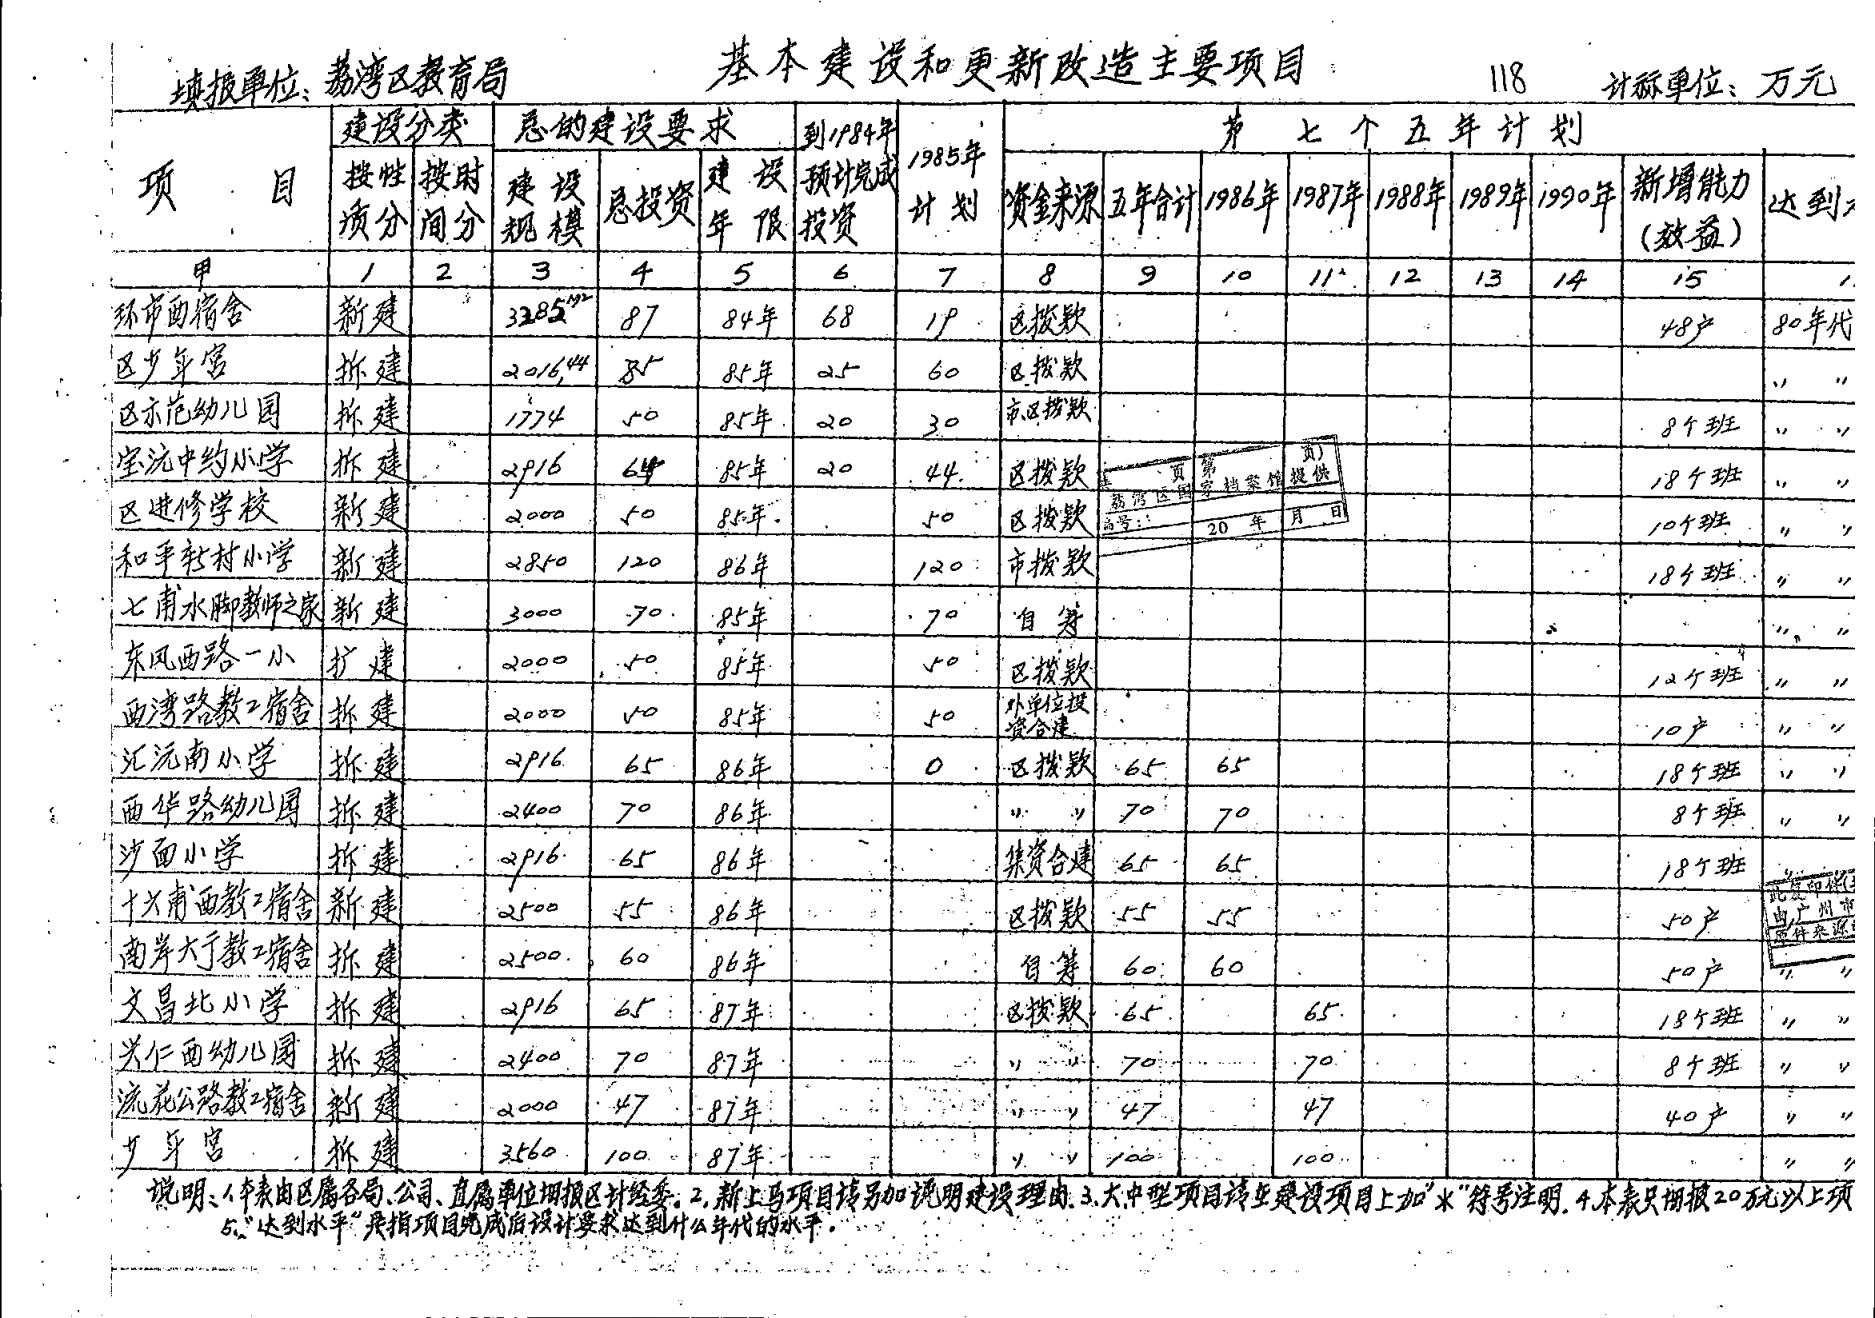 基本建设和更新改造主要项目
填报单位：荔湾区教育局 118 计称单位：万元
项目 建设分类 总的建设要求 到1984年预计完成投资 1985年计划 第七个五年计划
按性质分 按时间分 建设规模 总投资 建设年限 资金来源 五年合计 1986年 1987年 1988年 1989年 1990年 新增能力（效益） 达到
甲 1 2 3 4 5 6 7 8 9 10 11 12 13 14 15
环市西宿舍 新建 3285M2 87 84年 68 19 区拨款 48户 80年代
区少年宫 拆建 2016.44 85 85年 25 60 区拨款 〃 〃
区示范幼儿园 拆建 1774 50 85年 20 30 市.区拨款 8个班 〃 〃
宝沅中约小学 拆建 2916 64 85年 20 44 区拨款 18个班 〃 〃
区进修学校 新建 2000 50 85年 50 区拨款 10个班 〃 〃
和平新村小学 新建 2850 120 86年 120 市拨款 18个班 〃 〃
七甫水脚教师之家 新建 3000 70 85年 70 自筹 〃 〃
东风西路一小 扩建 2000 50 85年 50 区拨款 12个班 〃 〃
西湾路教工宿舍 拆建 2000 50 85年 50 外单位投资合建 10户 〃 〃
汇沅南小学 拆建 2916 65 86年 0 区拨款 65 65 18个班 〃 〃
西华路幼儿园 拆建 2400 70 86年 〃 〃 70 70 8个班 〃 〃
沙面小学 拆建 2916 65 86年 集资合建 65 65 18个班
十六甫西教工宿舍 新建 2500 55 86年 区拨款 55 55 50户
南岸大于教工宿舍 拆建 2500 60 86年 自筹 60 60 50户 〃 〃
文昌北小学 拆建 2916 65 87年 区拨款 65 65 18个班 〃 〃
兴仁西幼儿园 拆建 2400 70 87年 〃 〃 70 70 8个班 〃 〃
流花公路教工宿舍 新建 2000 47 87年 〃 〃 47 47 40户 〃 〃
少年宫 拆建 3560 100 87年 〃 〃 100 100 〃 〃
页第 页）
荔湾区国家档案馆提供
编号： 20 年 月 日
此复印件
由广州市
原件来源
说明：1.本表由区属各局、公司、直属单位填报区计经委。2.新上马项目请另加说明建设理由.3.大中型项目请在建设项目上加"*"符号注明.4.本表只填报20万元以上项
5."达到水平"是指项目完成后设计要求达到什么年代的水平.